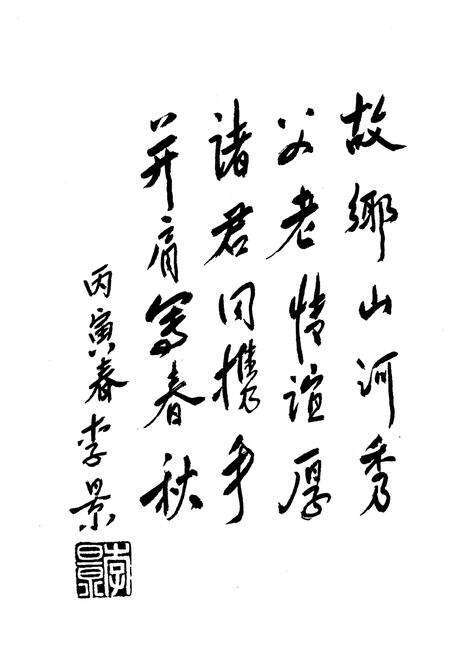 故乡山河秀
父老情谊厚
诸君同携手
并肩写春秋
丙寅春李景
李景